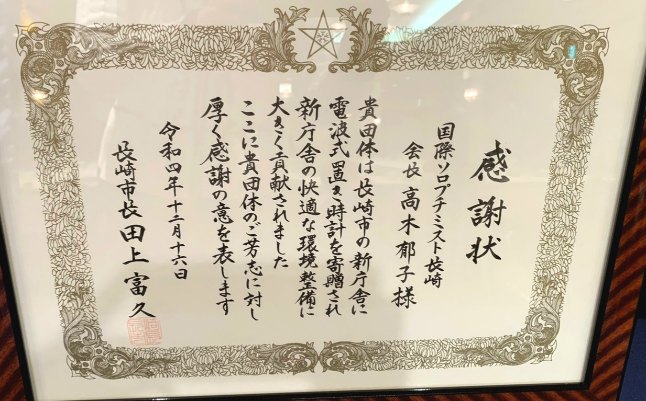 感謝状
国際ソロプチミスト長崎
会長 高木郁子様
貴団体は長崎市の新庁舎に
電波式置き時計を寄贈され
新庁舎の快適な環境整備に
大きく貢献されました
ここに貴団体のご芳志に対し
厚く感謝の意を表します
令和四年十二月十六日
長崎市長 田上富久